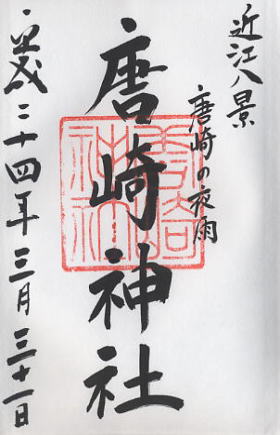 近江八景
唐崎の夜雨
唐崎神社
平成二十四年三月三十一日